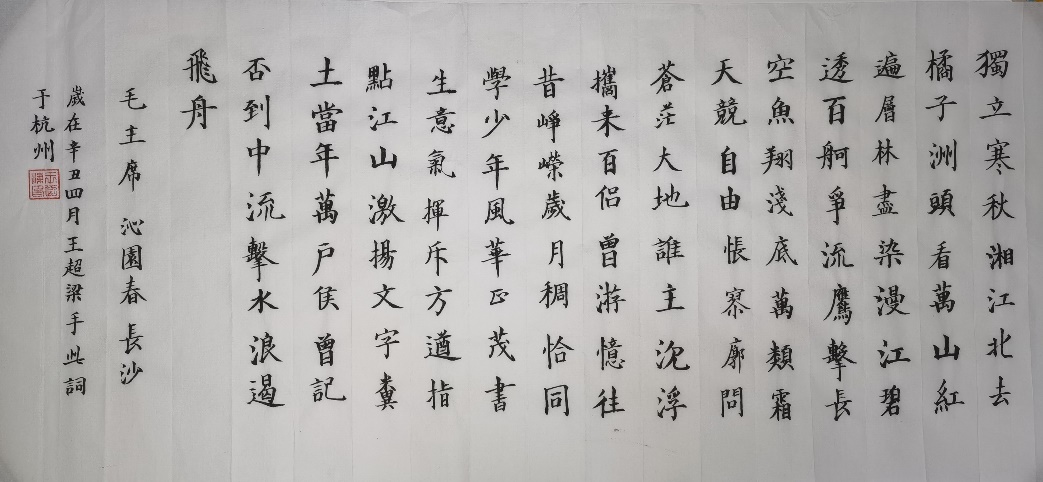 獨立寒秋湘江北去
橘子洲頭看萬山紅
遍層林盡染漫江碧
透百舸爭流鷹擊長
空魚翔淺底萬類霜
天競自由悵寥廓問
蒼茫大地誰主沈浮
攜来百侶曾游憶往
昔崢嶸歲月稠恰同
學少年風華正茂書
生意氣揮斥方遒指
點江山激揚文字糞
土當年萬戶侯曾記
否到中流擊水浪遏
飛舟
毛主席 沁園春 長沙
歲在辛丑四月王超梁手此詞
于杭州